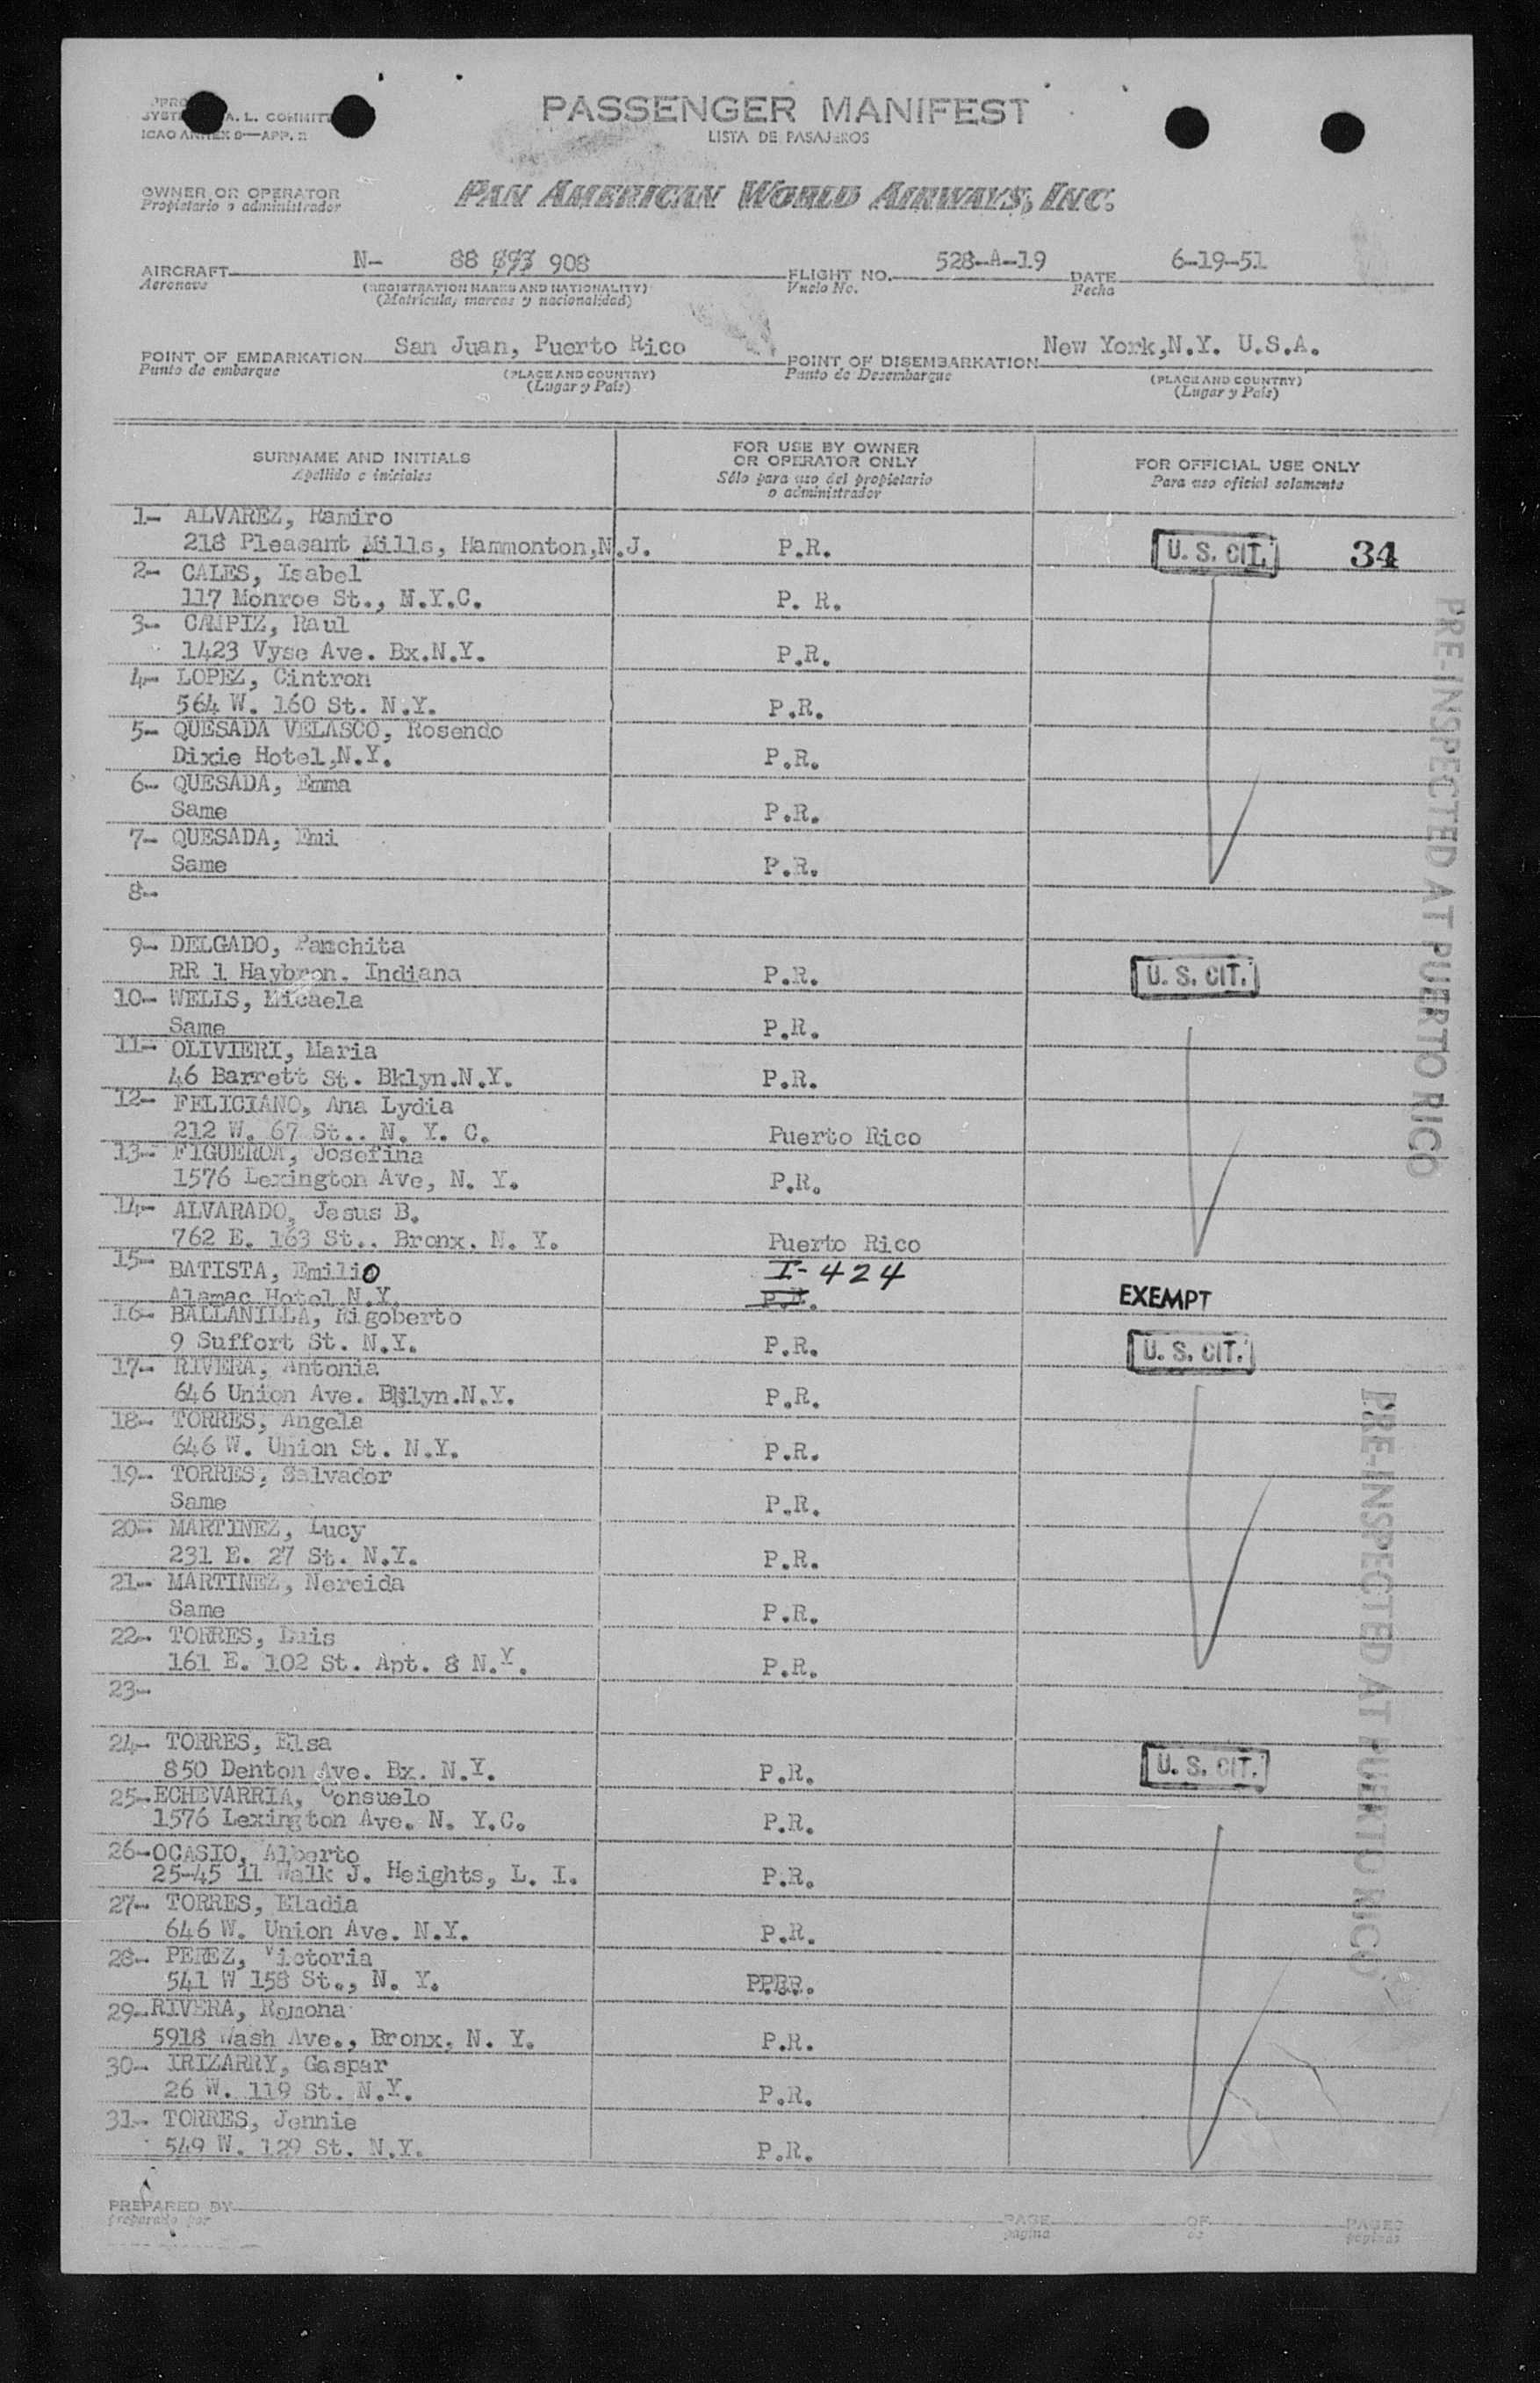 PASSENGER MANIFEST
LISTA DE PASAJEROS
A. L. COMMIT
ICAO ANNEX 9—APP. 2
OWNER OR OPERATOR
Propietario o administrador
PAN AMERICAN WORLD AIRWAYS, INC.
AIRCRAFT N- 88 893 908 FLIGHT NO. 528-A-19 DATE 6-19-51
Aeronave (REGISTRATION MARKS AND NATIONALITY) Vuelo No. Fecha
(Matrícula, marcas y nacionalidad)
POINT OF EMBARKATION San Juan, Puerto Rico POINT OF DISEMBARKATION New York,N.Y. U.S.A.
Punto de embarque (PLACE AND COUNTRY) Punto de Desembarque (PLACE AND COUNTRY)
(Lugar y País) (Lugar y País)
SURNAME AND INITIALS FOR USE BY OWNER OR OPERATOR ONLY FOR OFFICIAL USE ONLY
Apellido e iniciales Sólo para uso del propietario o administrador Para uso oficial solamente
1- ALVAREZ, Ramiro
218 Pleasant Mills, Hammonton,N.J. P.R. U. S. CIT. 34
2- CALES, Isabel
117 Monroe St., N.Y.C. P. R.
3- CAMPIZ, Raul
1423 Vyse Ave. Bx.N.Y. P.R.
4- LOPEZ, Cintron
564 W. 160 St. N.Y. P.R.
5- QUESADA VELASCO, Rosendo
Dixie Hotel,N.Y. P.R.
6- QUESADA, Emma
Same P.R.
7- QUESADA, Emi
Same P.R.
8-
9- DELGADO, Panchita
RR 1 Haybron. Indiana P.R. U. S. CIT.
10- WELLS, Micaela
Same P.R.
11- OLIVIERI, Maria
46 Barrett St. Bklyn.N.Y. P.R.
12- FELICIANO, Ana Lydia
212 W. 67 St.. N. Y. C. Puerto Rico
13- FIGUEROA, Josefina
1576 Lexington Ave, N. Y. P.R.
14- ALVARADO, Jesus B.
762 E. 163 St.. Bronx. N. Y. Puerto Rico
15- BATISTA, Emilio I-424
Alamac Hotel N.Y. P.R. EXEMPT
16- BALLANILLA, Rigoberto
9 Suffort St. N.Y. P.R. U. S. CIT.
17- RIVERA, Antonia
646 Union Ave. Bklyn.N.Y. P.R.
18- TORRES, Angela
646 W. Union St. N.Y. P.R.
19- TORRES, Salvador
Same P.R.
20- MARTINEZ, Lucy
231 E. 27 St. N.Y. P.R.
21- MARTINEZ, Nereida
Same P.R.
22- TORRES, Luis
161 E. 102 St. Apt. 8 N.Y. P.R.
23-
24- TORRES, Elsa
850 Denton Ave. Bx. N.Y. P.R. U. S. CIT.
25- ECHEVARRIA, Consuelo
1576 Lexington Ave. N. Y.C. P.R.
26- OCASIO, Alberto
25-45 11 Walk J. Heights, L. I. P.R.
27- TORRES, Eladia
646 W. Union Ave. N.Y. P.R.
28- PEREZ, Victoria
541 W 158 St., N. Y.
29- RIVERA, Ramona
5918 Wash Ave., Bronx, N. Y. P.R.
30- IRIZARRY, Gaspar
26 W. 119 St. N.Y. P.R.
31- TORRES, Jennie
549 W. 129 St. N.Y. P.R.
PRE-INSPECTED AT PUERTO RICO
PRE-INSPECTED AT PUERTO RICO
PREPARED BY PAGE OF PAGES
preparado por página de páginas